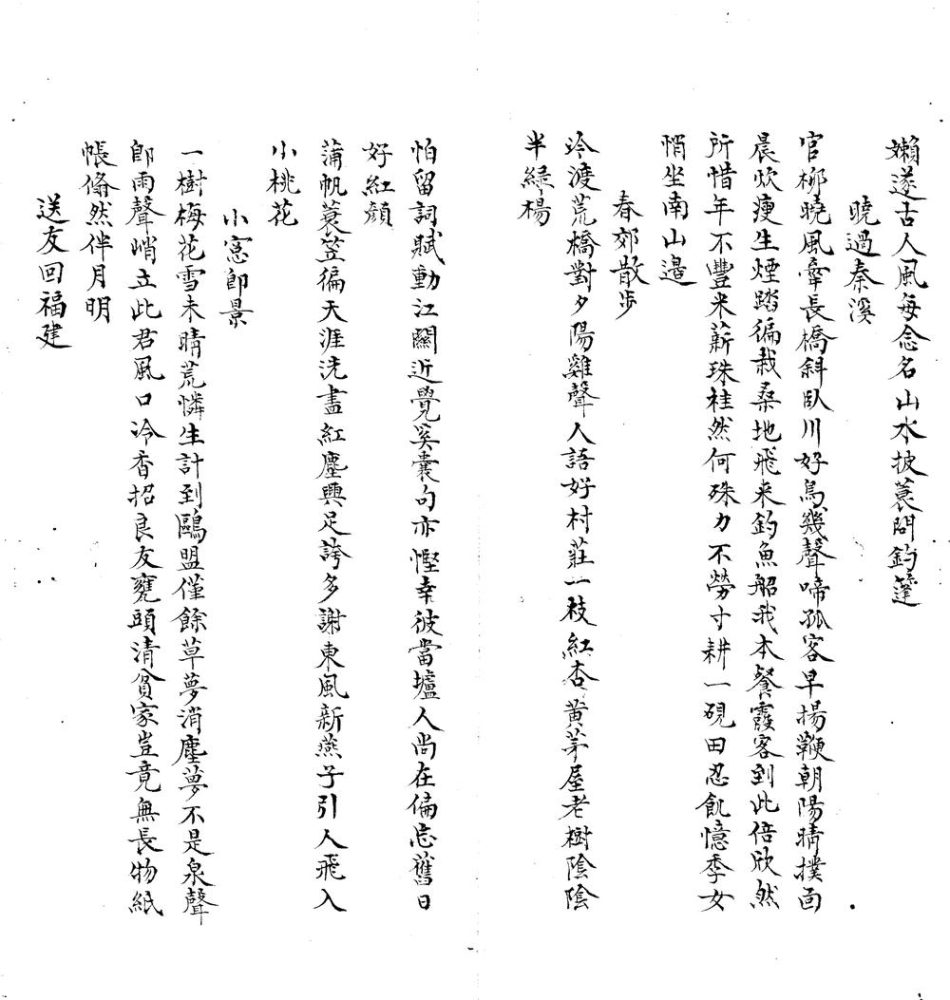 嬾遂古人風每念名山水披蓑問釣篷
曉過秦溪
官柳曉風牽長橋斜臥川好鳥幾聲啼孤客早揚鞭朝陽晴撲面
晨炊瘦生煙踏徧栽桑地飛来釣魚船我本餐霞客到此倍欣然
所惜年不豐米薪珠桂然何殊力不勞寸耕一硯田忍飢憶季女
悄坐南山邉
春郊散步
冷渡荒橋對夕陽雞聲人語好村莊一枝紅杏黄茅屋老樹陰陰
半緑楊
怕留詞賦動江關近覺奚囊句亦慳幸彼當壚人尚在偏忘舊日
好紅顔
蒲帆蓑笠徧天涯洗盡紅塵興足誇多謝東風新燕子引人飛入
小桃花
小窓卽景
一樹梅花雪未晴荒憐生計到鷗盟僅餘草夢消塵夢不是泉聲
卽雨聲峭立此君風口冷香招良友甕頭清貧家豈竟無長物紙
帳翛然伴月明
送友回福建